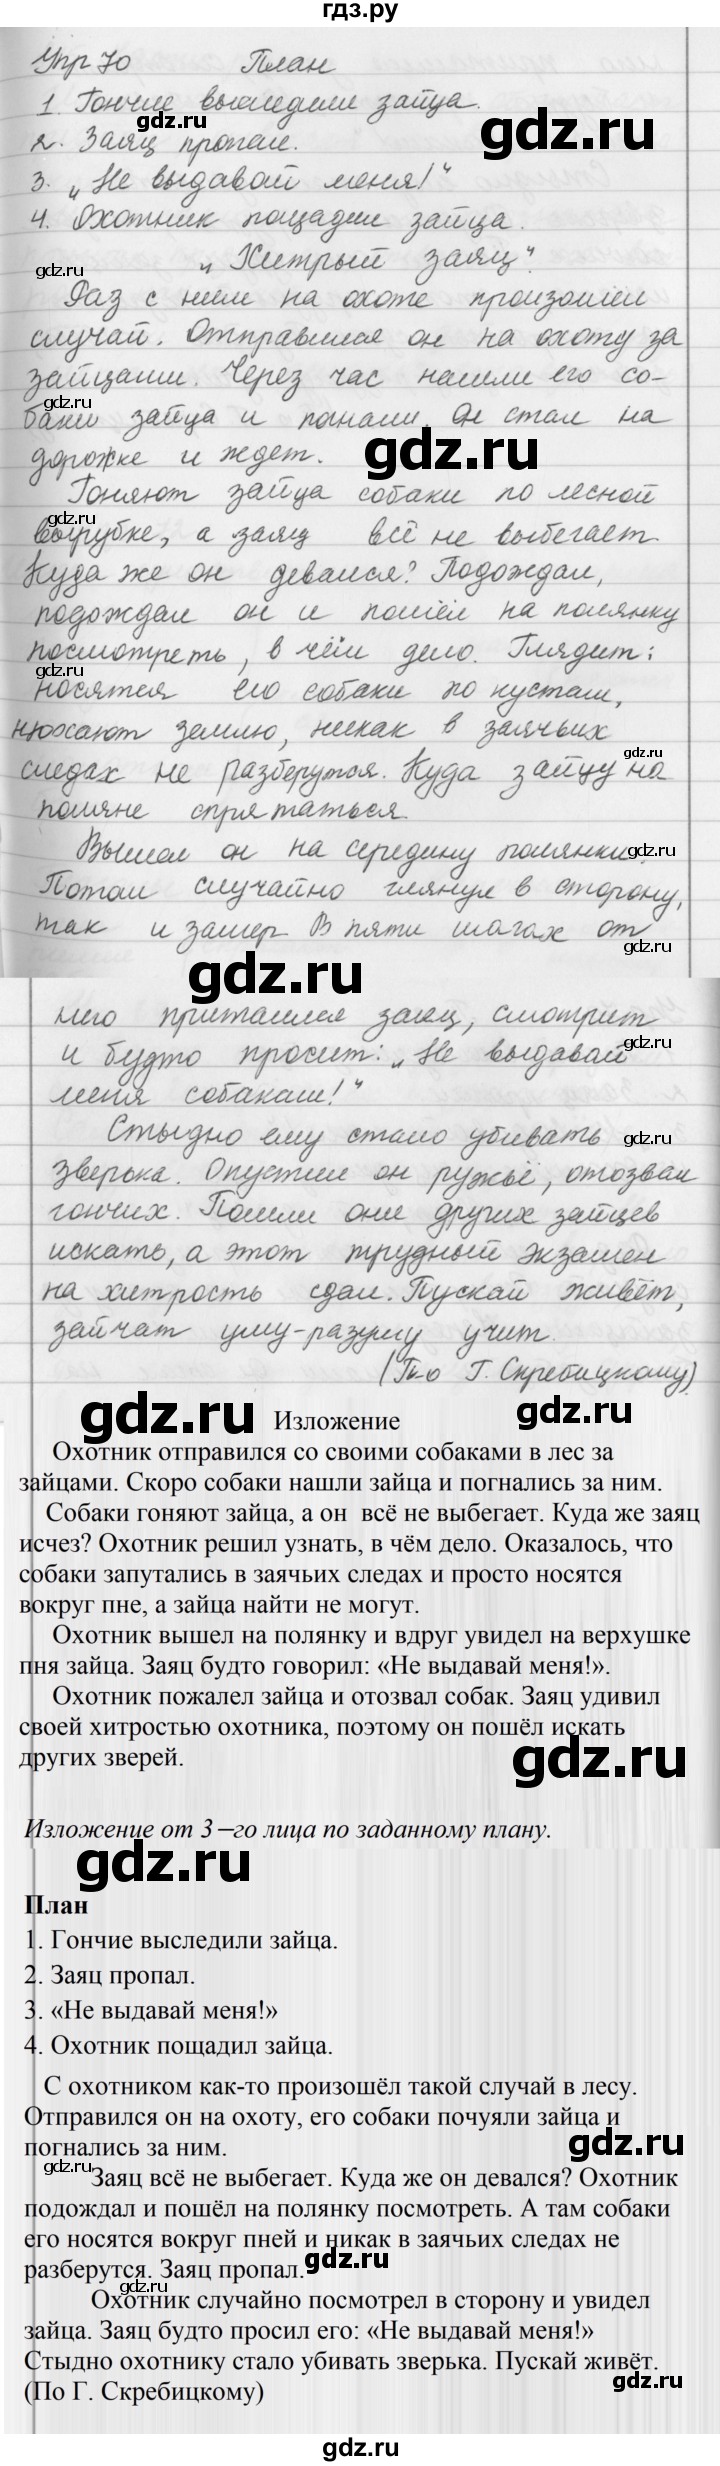 гдз.ру
Упр 70 План
1. Гончие выследили зайца.
gdz.ru
gdz.ru
2. Заяц пропал.
3. „Не выдавай меня!“
4. Охотник пощадил зайца.
gdz.ru
„Хитрый заяц“.
Раз с ним на охоте произошёл
случай. Отправился он на охоту за
gdz.ru
зайцами. Через час нашли его со-
gdz.ru
баки зайца и погнали. Он стал на
gdz.ru
дорожке и ждет.
Гоняют зайца собаки по лесной
gdz.ru
вырубке, а заяц всё не выбегает.
Куда же он девался? Подождал,
подождал он и пошёл на полянку
посмотреть, в чём дело. Глядит:
gdz.ru
носятся его собаки по кустам,
нюхают землю, никак в заячьих
gdz.ru
следах не разберутся. Куда зайцу на
поляне спрятаться.
Вышел он на середину полянки.
gdz.ru
Потом случайно глянул в сторону,
так и замер. В пяти шагах от
gdz.ru
gdz.ru
него притаился заяц, смотрит
gdz.ru
и будто просит: „Не выдавай
меня собакам!“
Стыдно ему стало убивать
gdz.ru
зверька. Опустил он ружьё, отозвал
гончих. Пошли они других зайцев
искать, а этот трудный экзамен
на хитрость сдал. Пускай живёт,
зайчат уму-разуму учит.
(По Г. Скребицкому)
gdz.ru
gdz.ru
Изложение
Охотник отправился со своими собаками в лес за
зайцами. Скоро собаки нашли зайца и погнались за ним.
Собаки гоняют зайца, а он всё не выбегает. Куда же заяц
исчез? Охотник решил узнать, в чём дело. Оказалось, что
собаки запутались в заячьих следах и просто носятся
вокруг пне, а зайца найти не могут.
Охотник вышел на полянку и вдруг увидел на верхушке
пня зайца. Заяц будто говорил: «Не выдавай меня!».
Охотник пожалел зайца и отозвал собак. Заяц удивил
своей хитростью охотника, поэтому он пошёл искать
других зверей.
gdz.ru
Изложение от 3–го лица по заданному плану.
gdz.ru
План
1. Гончие выследили зайца.
2. Заяц пропал.
3. «Не выдавай меня!»
4. Охотник пощадил зайца.
С охотником как-то произошёл такой случай в лесу.
Отправился он на охоту, его собаки почуяли зайца и
погнались за ним.
gdz.ru
gdz.ru
Заяц всё не выбегает. Куда же он девался? Охотник
подождал и пошёл на полянку посмотреть. А там собаки
его носятся вокруг пней и никак в заячьих следах не
разберутся. Заяц пропал.
gdz.ru
gdz.ru
Охотник случайно посмотрел в сторону и увидел
зайца. Заяц будто просил его: «Не выдавай меня!»
Стыдно охотнику стало убивать зверька. Пускай живёт.
gdz.ru
(По Г. Скребицкому)
gdz.ru